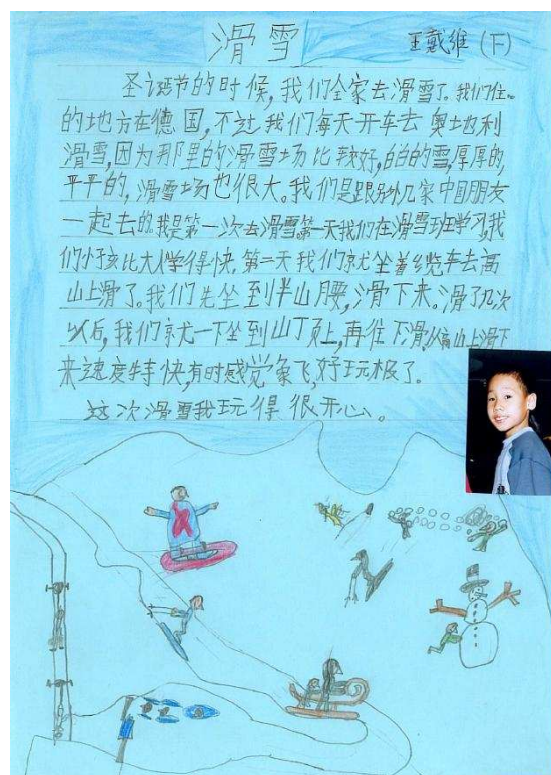 滑雪
王戴维(F)
圣诞节的时候,我们全家去滑雪了。我们住
的地方在德国,不过我们每天开车去奥地利
滑雪,因为那里的滑雪场比较好,白白的雪,厚厚的,
平平的,滑雪场也很大。我们是跟别外几家中国朋友
一起去的。我是第一次去滑雪。第一天我们在滑雪班学习,我
们小孩比大人学得快。第二天我们就坐着缆车去高
山上滑了。我们先坐到半山腰,滑下来。滑了几次
以后,我们就一下坐到山顶上,再往下滑。从高山上滑下
来速度特快,有时感觉象飞,好玩极了。
这次滑雪我玩得很开心。